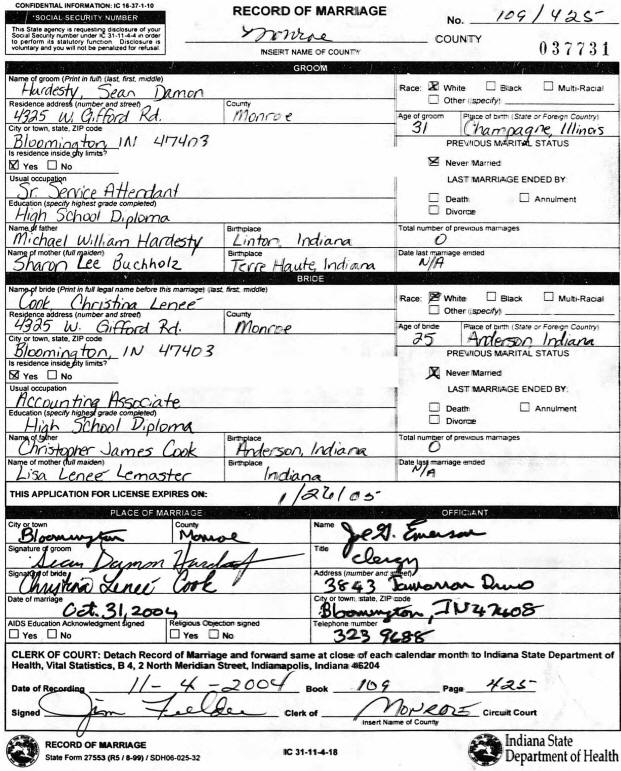 CONFIDENTIAL INFORMATION: IC 16-37-1-10
*SOCIAL SECURITY NUMBER
This State agency is requesting disclosure of your
Social Security number under IC 31-11-4-4 in order
to perform its statutory function. Disclosure is
voluntary and you will not be penalized for refusal.
RECORD OF MARRIAGE
Monroe
INSERT NAME OF COUNTY
No. 109/425
COUNTY
037731
GROOM
Name of groom (Print in full) (last, first, middle)
Hardesty, Sean Damon
Residence address (number and street) County
4325 W. Gifford Rd. Monroe
City or town, state, ZIP code
Bloomington, IN 47403
Is residence inside city limits?
Yes No
Usual occupation
Sr. Service Attendant
Education (specify highest grade completed)
High School Diploma
Name of father Birthplace
Michael William Hardesty Linton, Indiana
Name of mother (full maiden) Birthplace
Sharon Lee Buchholz Terre Haute, Indiana
Race: White Black Multi-Racial
Other (specify)
Age of groom Place of birth (State or Foreign Country)
31 Champagne, Illinois
PREVIOUS MARITAL STATUS
Never Married
LAST MARRIAGE ENDED BY:
Death Annulment
Divorce
Total number of previous marriages
0
Date last marriage ended
N/A
BRIDE
Name of bride (Print in full legal name before this marriage) (last, first, middle)
Cook, Christina Leneé
Residence address (number and street) County
4325 W. Gifford Rd. Monroe
City or town, state, ZIP code
Bloomington, IN 47403
Is residence inside city limits?
Yes No
Usual occupation
Accounting Associate
Education (specify highest grade completed)
High School Diploma
Name of father Birthplace
Christopher James Cook Anderson, Indiana
Name of mother (full maiden) Birthplace
Lisa Leneé Lemaster Indiana
Race: White Black Multi-Racial
Other (specify)
Age of bride Place of birth (State or Foreign Country)
25 Anderson Indiana
PREVIOUS MARITAL STATUS
Never Married
LAST MARRIAGE ENDED BY:
Death Annulment
Divorce
Total number of previous marriages
0
Date last marriage ended
N/A
THIS APPLICATION FOR LICENSE EXPIRES ON: 1/26/05
PLACE OF MARRIAGE
City or town County
Bloomington Monroe
Signature of groom
Sean Damon Hardesty
Signature of bride
Christina Leneé Cook
Date of marriage
Oct. 31, 2004
AIDS Education Acknowledgment signed Religious Objection signed
Yes No Yes No
OFFICIANT
Name
Joe G. Emerson
Title
Clergy
Address (number and street)
3843
City or town, state, ZIP code
Bloomington, IN 47408
Telephone number
323 9688
CLERK OF COURT: Detach Record of Marriage and forward same at close of each calendar month to Indiana State Department of
Health, Vital Statistics, B 4, 2 North Meridian Street, Indianapolis, Indiana 46204
Date of Recording 11-4-2004 Book 109 Page 425
Signed Jim Fielder Clerk of MONROE Circuit Court
Insert Name of County
RECORD OF MARRIAGE
State Form 27553 (R5 / 8-99) / SDH06-025-32
IC 31-11-4-18
Indiana State
Department of Health